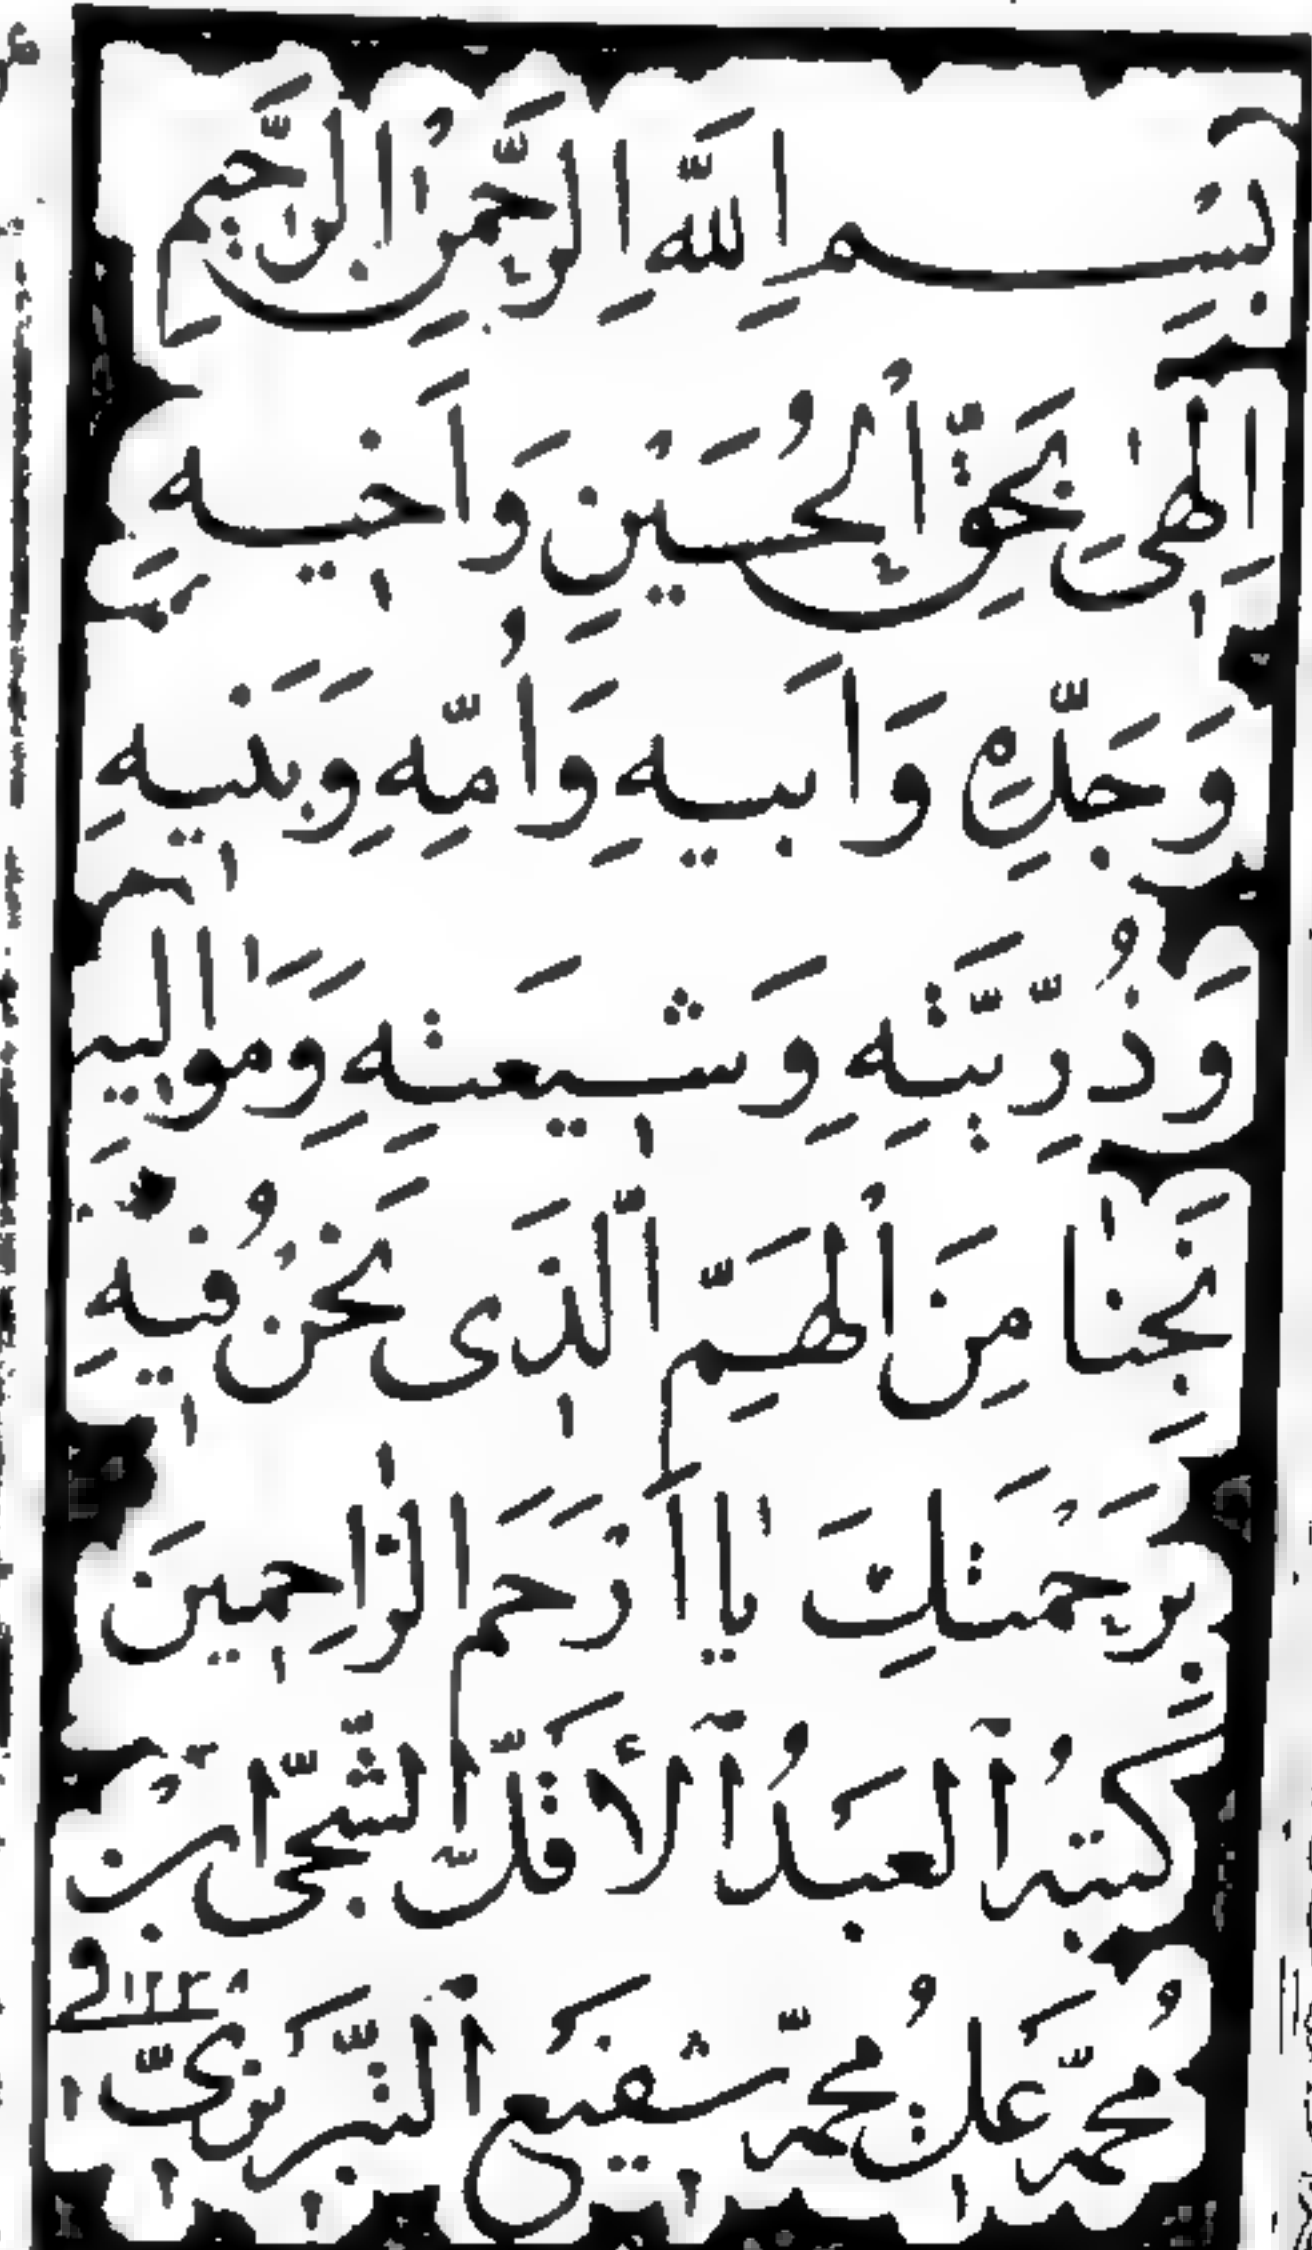 بِسْمِ اللَّهِ الرَّحْمٰنِ الرَّحِيمِ
إِلٰهِى بِحَقِّ الْحُسَيْنِ وَأَخِيهِ
وَجَدِّهِ وَأَبِيهِ وَأُمِّهِ وَبَنِيهِ
وَذُرِّيَّتِهِ وَشِيعَتِهِ وَمَوٰالِيهِ
نَجِّنٰا مِنَ الْهَمِّ الَّذِى نَحْنُ فِيهِ
بِرَحْمَتِكَ يٰا أَرْحَمَ الرّٰاحِمِينَ
كتبه العبدُ الأقلّ ابن
محمّد علي محمّد شفيع التبريزيّ
في